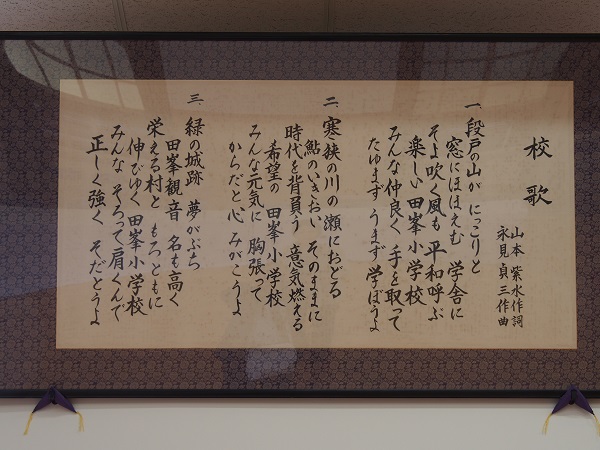 校歌
山本紫水作詞
永見貞三作曲
一、段戸の山が にっこりと
窓にほほえむ 学舎に
そよ吹く風も 平和呼ぶ
楽しい 田峯小学校
みんな仲良く 手を取って
たゆまず うまず 学ぼうよ
二、寒狭の川の 瀬におどる
鮎のいきおい そのままに
時代を背負う 意気燃える
希望の 田峯小学校
みんな元気に 胸張って
からだと心 みがこうよ
三、緑の城跡 夢がぶち
田峯観音 名も高く
栄える村と もろともに
伸びゆく 田峯小学校
みんな そろって肩くんで
正しく強く そだとうよ